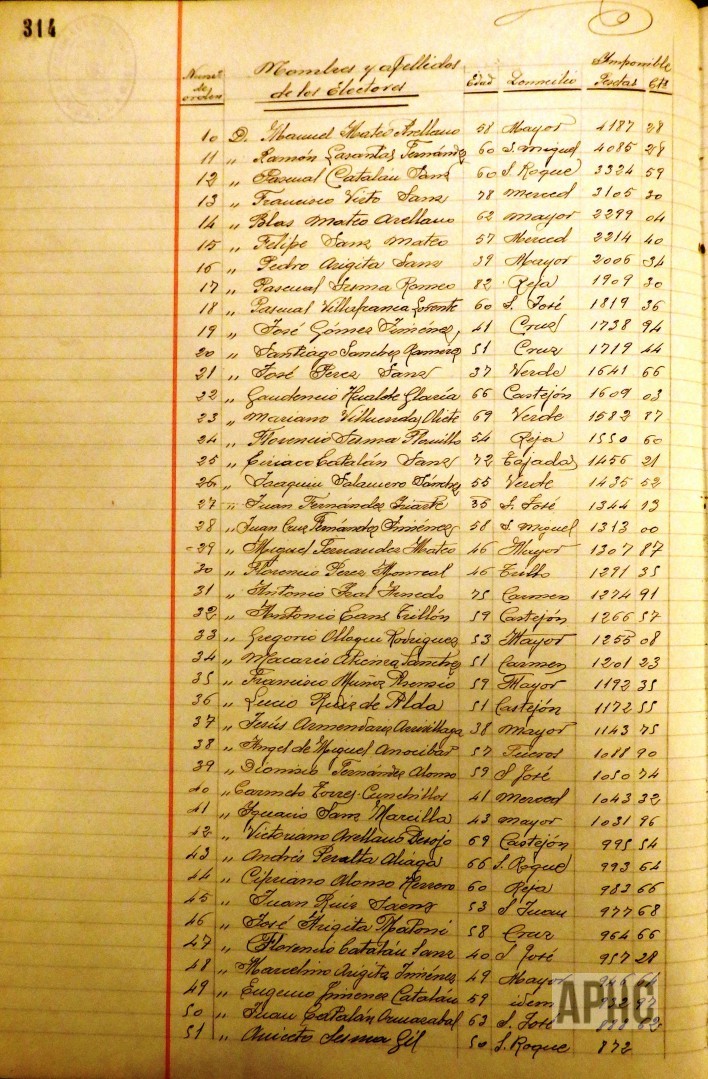 314
Numº de orden Nombres y apellidos de los Electores Edad Domicilio Imponible Pesetas Cts
10 D. Manuel Mateo Arellano 58 Mayor 4187 28
11 " Ramón Lasantas Fernández 60 S. Miguel 4085 28
12 " Pascual Catalán Sanz 60 S. Roque 3324 59
13 " Francisco Visto Sanz 78 Merced 3105 30
14 " Blas Mateo Arellano 62 Mayor 2299 04
15 " Felipe Sanz Mateo 57 Merced 2214 40
16 " Pedro Arigita Sanz 39 Mayor 2006 34
17 " Pascual Sesma Romeo 82 Reja 1909 30
18 " Pascual Villafranca Lorente 60 S. José 1819 36
19 " José Gómez Jiménez 41 Cruz 1738 94
20 " Santiago Sanchez Ramirez 51 Cruz 1719 44
21 " José Perez Sanz 37 Verde 1641 66
22 " Gaudencio Hualde Glaría 66 Castejón 1609 03
23 " Mariano Villuendas Oliete 69 Verde 1582 87
24 " Florencio Sesma 54 Reja 1550 60
25 " Ciriaco Catalán Sanz 72 Tajadas 1456 21
26 " Joaquin Salamero Sánchez 55 Verde 1435 52
27 " Juan Fernández Iriarte 35 S. José 1344 13
28 " Juan Cruz Fernández Jiménez 58 S. Miguel 1313 00
29 " Miguel Fernandez Mateo 46 Mayor 1307 87
30 " Florencio Perez Monreal 46 Trillo 1291 35
31 " Antonio Arnedo 75 Carmen 1274 91
32 " Antonio Trillón 59 Castejón 1266 57
33 " Gregorio Olloqui Rodriguez 53 Mayor 1255 08
34 " Macario Sanchez 51 Carmen 1201 23
35 " Francisco Muñoz 59 Mayor 1192 35
36 " Lucio Ruiz de Alda 51 Castejón 1172 55
37 " Jesús Armendariz Arrivillaga 38 Mayor 1143 75
38 " Angel de Miguel Anocibar 57 Fueros 1088 90
39 " Dionisio Fernández Alonso 59 S José 1050 74
40 " Carmelo Torres Cunchillos 41 Merced 1043 32
41 " Ignacio Sanz Marcilla 43 Mayor 1031 96
42 " Victoriano Arellano 69 Castejón 995 54
43 " Andrés Peralta Aliaga 66 S. Roque 993 64
44 " Cipriano Alonso Herrero 60 Reja 983 66
45 " Juan Ruiz Saenz 53 S Juan 977 68
46 " José Arigita 58 Cruz 964 66
47 " Florencio Catalán Sanz 40 S José 957 28
48 " Marcelino Arigita Jiménez 49 Mayor
49 " Eugenio Jimenez Catalán 59 idem
50 " Juan Catalán Ormazabal 63 S. José
51 " Aniceto Sesma Gil 50 S. Roque 872
APHG